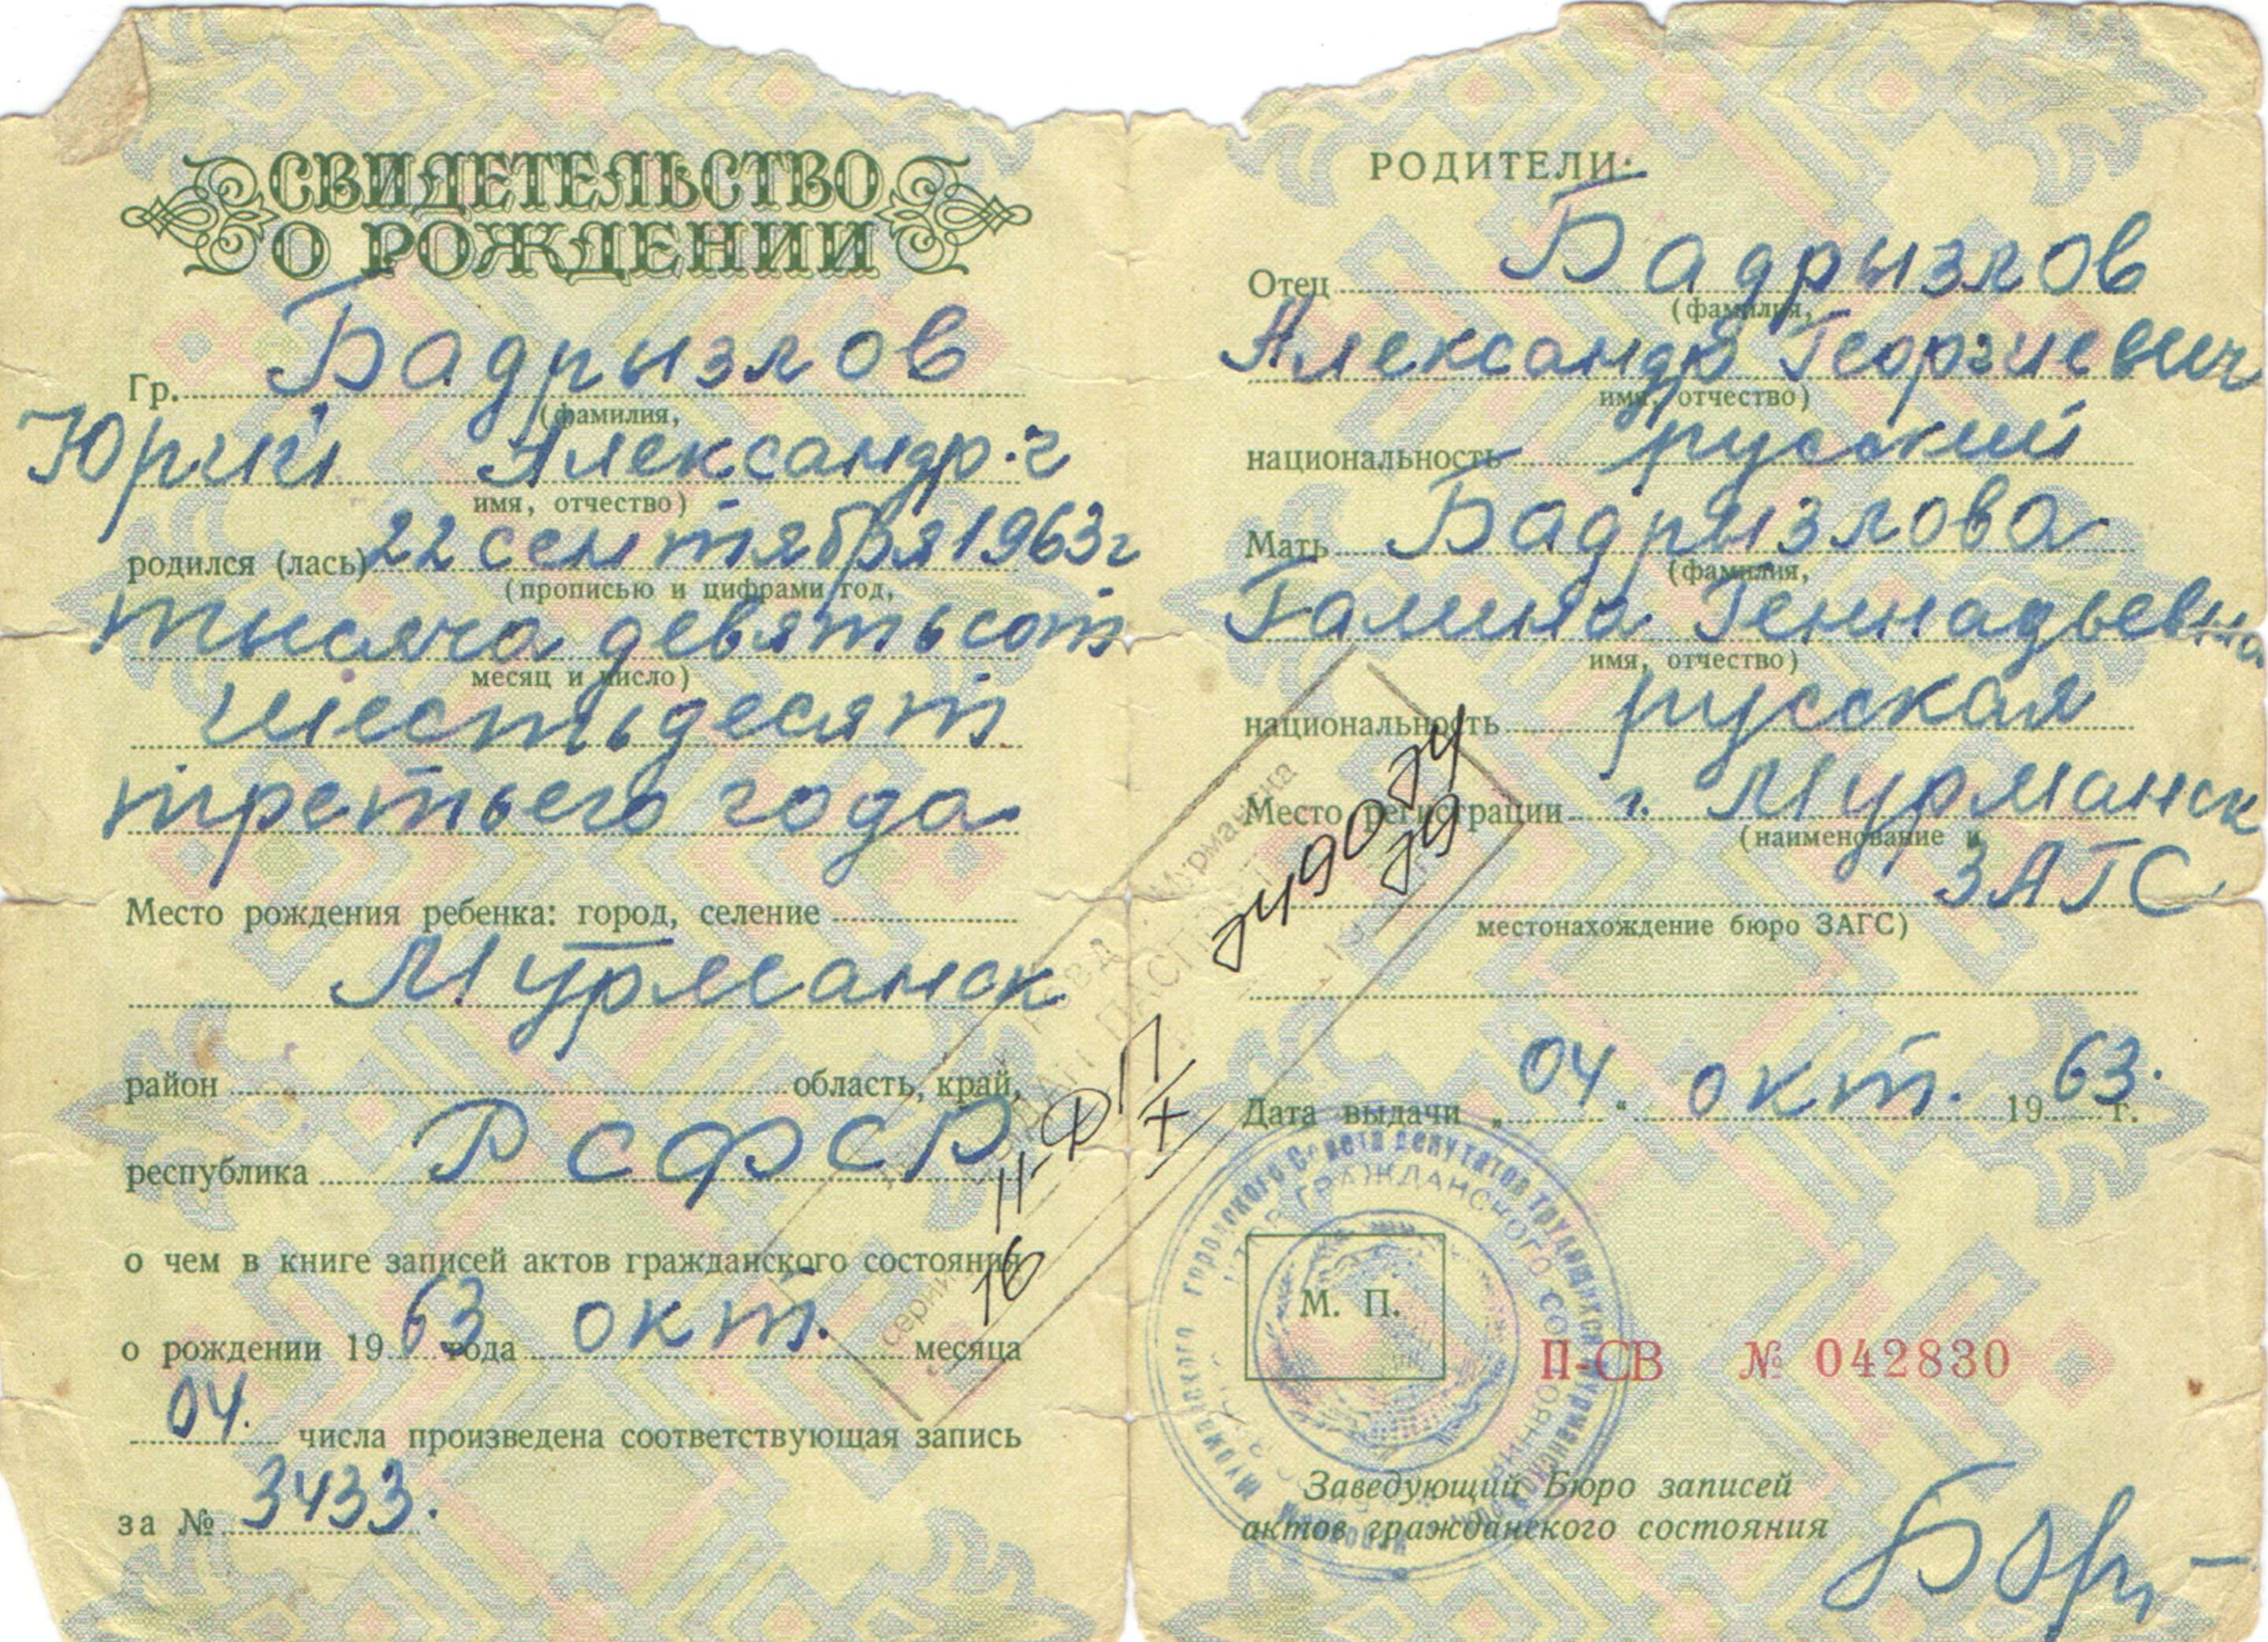 СВИДЕТЕЛЬСТВО
О РОЖДЕНИИ
Гр. Бадрызлов
(фамилия,
Юрий Александр-г
имя, отчество)
родился (лась) 22 сентября 1963 г
(прописью и цифрами год,
тысяча девятьсот
месяц и число)
шестьдесят
третьего года
Место рождения ребенка: город, селение
Мурманск
район область, край,
республика РСФСР
о чем в книге записей актов гражданского состояния
о рождении 1963 года окт. месяца
04. числа произведена соответствующая запись
за № 3433.
РОДИТЕЛИ:
Отец Бадрызлов
(фамилия,
Александр Георгиевич
имя, отчество)
национальность русский
Мать Бадрызлова
(фамилия,
Галина Геннадьевна
имя, отчество)
национальность русская
Место регистрации г. Мурманск
(наименование и
ЗАГС
местонахождение бюро ЗАГС)
Дата выдачи „04." окт. 1963. г.
М. П.
II-СВ № 042830
Заведующий Бюро записей
актов гражданского состояния
Мурманска
серии
16
городского Совета депутатов трудящихся
ГРАЖДАНСКОГО